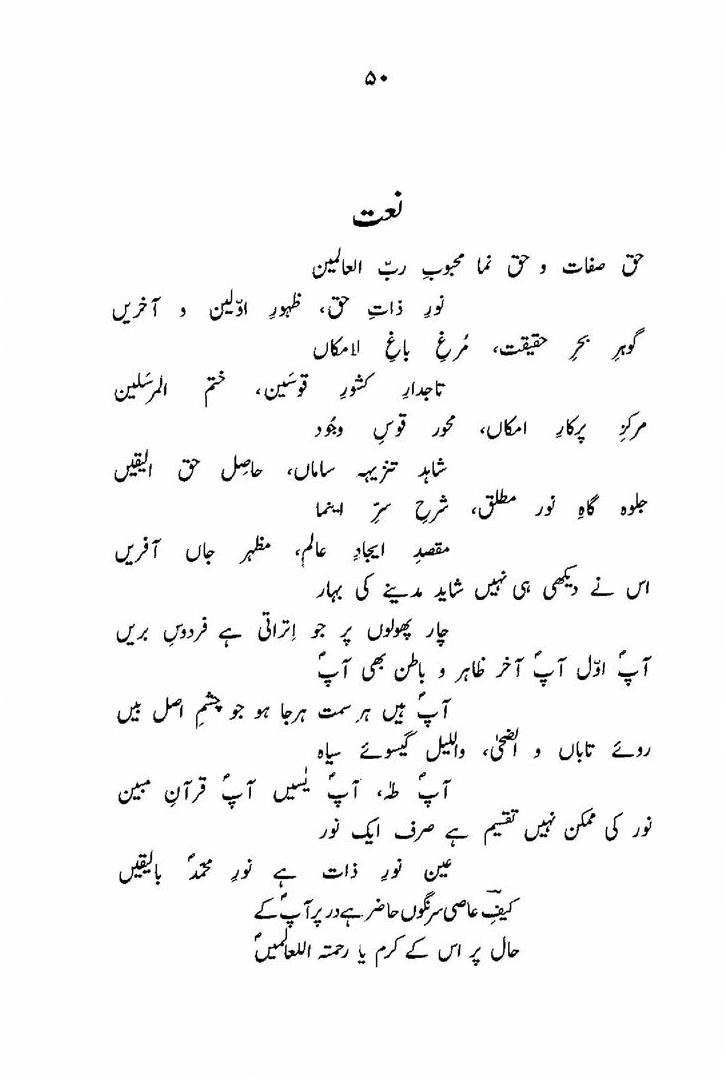 ۵۰
نعت
حق صفات و حق نما محبوبِ ربّ العالمین
نورِ ذاتِ حق، ظہورِ اوّلین و آخریں
گوہرِ بحرِ حقیقت، مُرغِ باغِ لامکاں
تاجدارِ کشورِ قوسَین، ختم المرسَلین
مرکزِ پرکارِ امکاں، محور قوسِ وجُود
شاہد تنزیہہ ساماں، حاصِل حق الیقیں
جلوہ گاہِ نور مطلق، شرحِ سرِّ اینما
مقصدِ ایجادِ عالم، مظہر جاں آفریں
اس نے دیکھی ہی نہیں شاید مدینے کی بہار
چار پھولوں پر جو اِتراتی ہے فردوسِ بریں
آپؐ اوّل آپؐ آخر ظاہر و باطن بھی آپؐ
آپؐ ہیں ہر سمت ہرجا ہو جو چشمِ اصل بیں
روئے تاباں و الضحیٰ، واللیل گیسوئے سیاہ
آپؐ طہٰ، آپؐ یٰسیں آپؐ قرآنِ مبین
نور کی ممکن نہیں تقسیم ہے صرف ایک نور
عین نورِ ذات ہے نورِ محمدؐ بالیقیں
کیفِؔ عاصی سرنگوں حاضر ہے در پر آپؐ کے
حال پر اس کے کرم یا رحمتہ اللعالمیںؐ